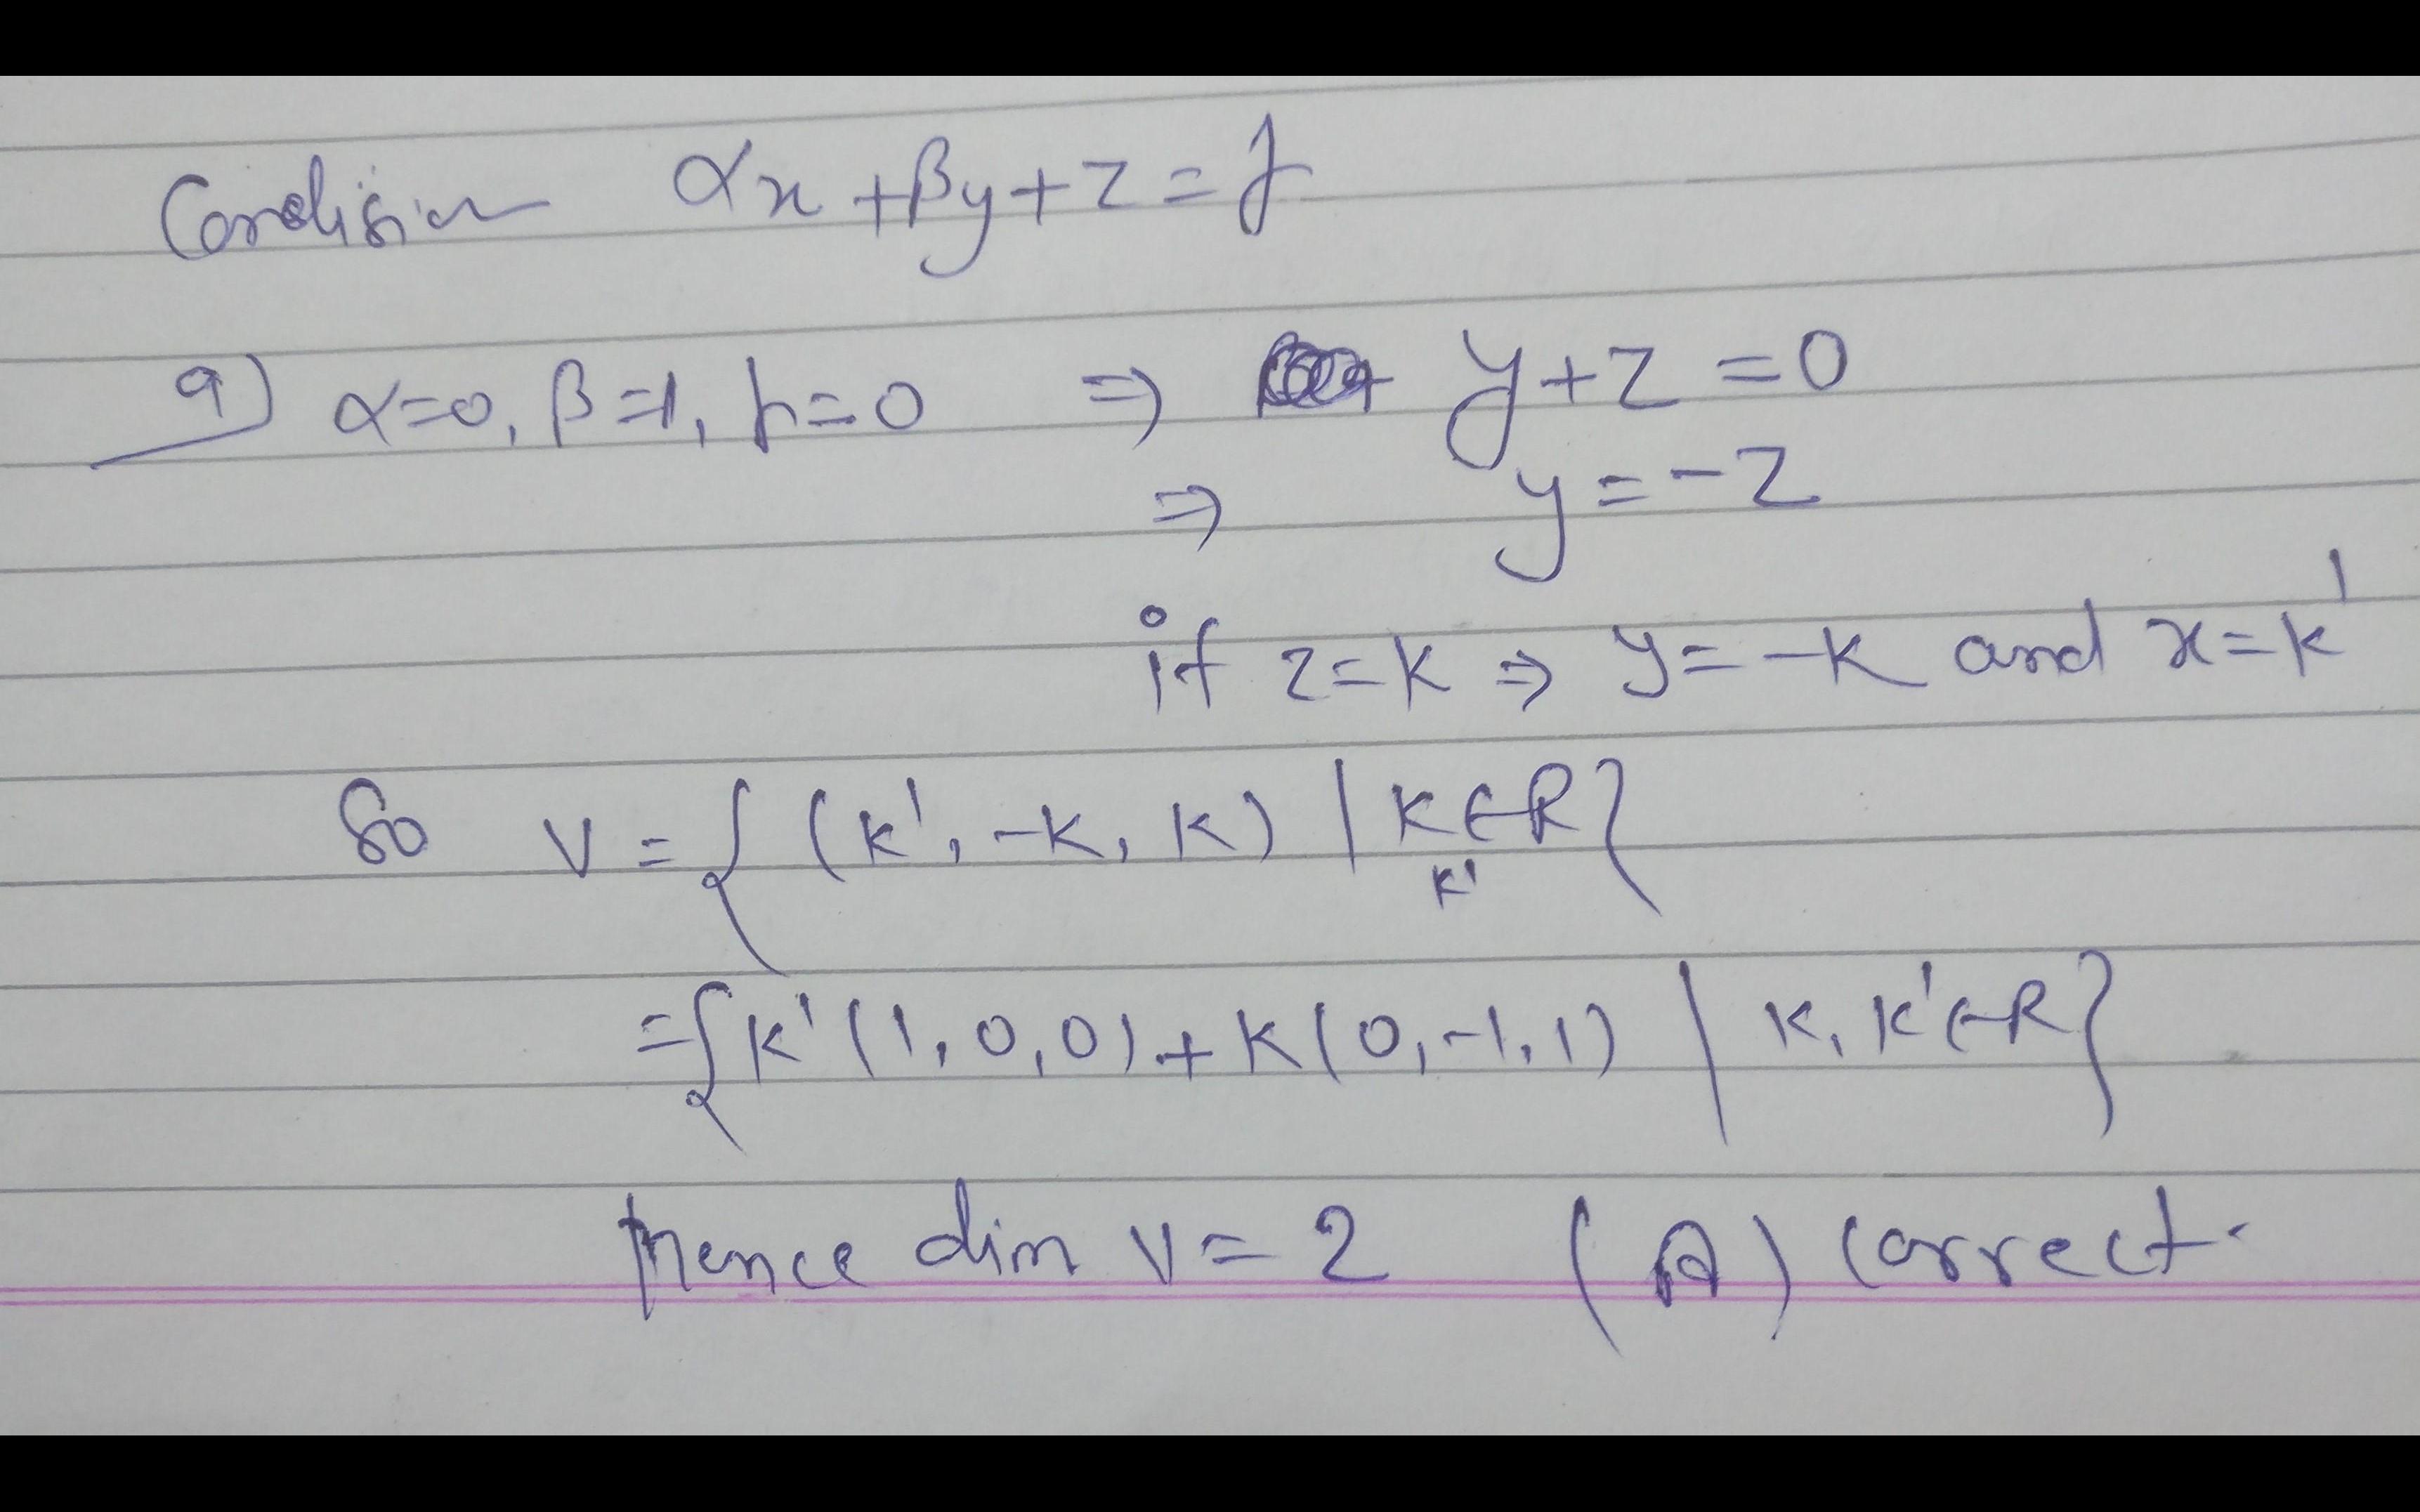 Condision αx + βy + z = γ
a) α=0, β=1, γ=0 ⇒ y + z = 0
⇒ y = -z
if z = K ⇒ y = -K and x = K'
So V = { (K', -K, K) | K ∈ R }
K'
= { K'(1, 0, 0) + K(0, -1, 1) | K, K' ∈ R }
hence dim V = 2 (A) correct.